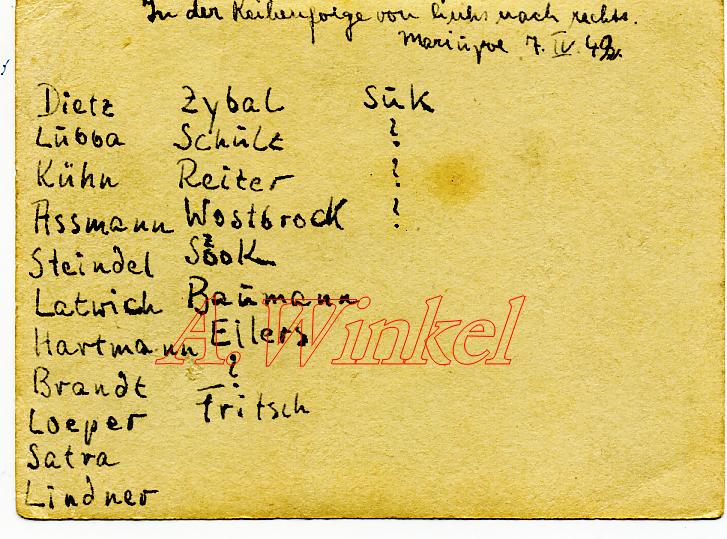 In der Reihenfolge von links nach rechts.
Mariupol 7. IV. 42.
Dietz
Lubba
Kühn
Assmann
Steindel
Latwich
Hartmann
Brandt
Loeper
Satra
Lindner
Zybal
Schulz
Reiter
Wostbrock
Szook
Baumann
Eilers
?
Fritsch
Suk
?
?
?
A.Winkel